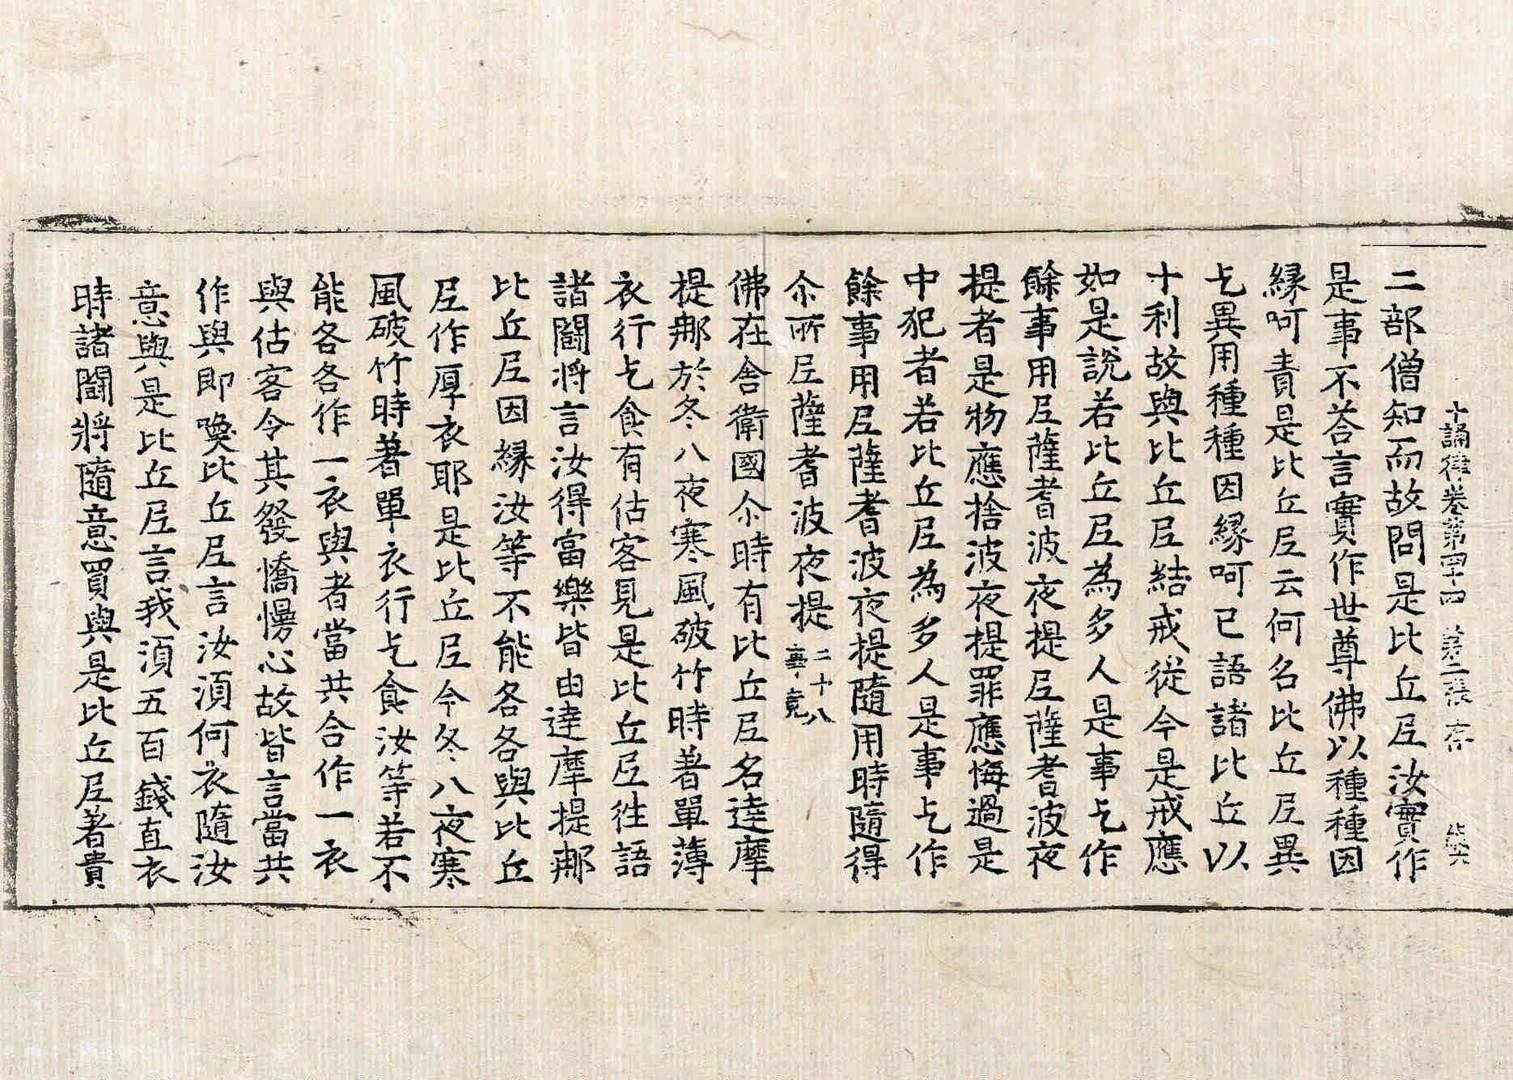 十誦律卷第四十四 第二張 存
二部僧知而故問是比丘尼汝實作
是事不荅言實作世尊佛以種種因
縁呵責是比丘尼云何名比丘尼異
乞異用種種因縁呵已語諸比丘以
十利故與比丘尼結戒從今是戒應
如是說若比丘尼為多人是事乞作
餘事用尼薩耆波夜提尼薩耆波夜
提者是物應捨波夜提罪應悔過是
中犯者若比丘尼為多人是事乞作
餘事用尼薩耆波夜提隨用時隨得
尒所尼薩耆波夜提二十八事竟
佛在舍衛國尒時有比丘尼名達摩
提郍於冬八夜寒風破竹時著單薄
衣行乞食有估客見是比丘尼徃語
諸闘將言汝得富樂皆由達摩提郍
比丘尼因縁汝等不能各各與比丘
尼作厚衣耶是比丘尼今冬八夜寒
風破竹時著單衣行乞食汝等若不
能各各作一衣與者當共合作一衣
與估客令其發憍慢心故皆言當共
作與即喚比丘尼言汝湏何衣隨汝
意與是比丘尼言我湏五百錢直衣
時諸闘將隨意買與是比丘尼著貴